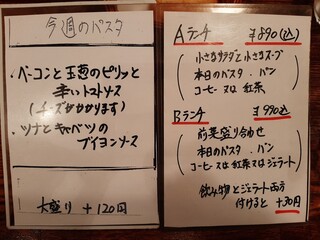 今週のパスタ
・ベーコンと玉葱のピリッと
辛いトマトソース
(チーズがかかります)
・ツナとキャベツの
ブイヨンソース
大盛り +120円
Aランチ ¥890(込)
(小さなサラダと小さなスープ
本日のパスタ.パン
コーヒー又は紅茶)
Bランチ ¥990込
(前菜盛り合わせ
本日のパスタ.パン
コーヒー又は紅茶又はジェラート)
飲み物とジェラート両方
付けると +30円